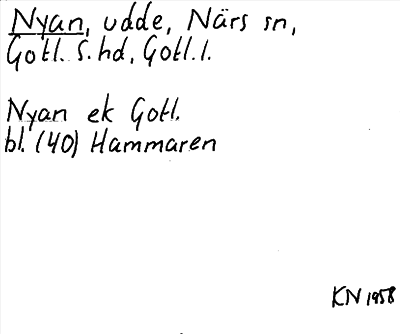 Nyan, udde, Närs sn,
Gotl. S. hd, Gotl. l.
Nyan ek Gotl.
bl. (40) Hammaren
KN 1958